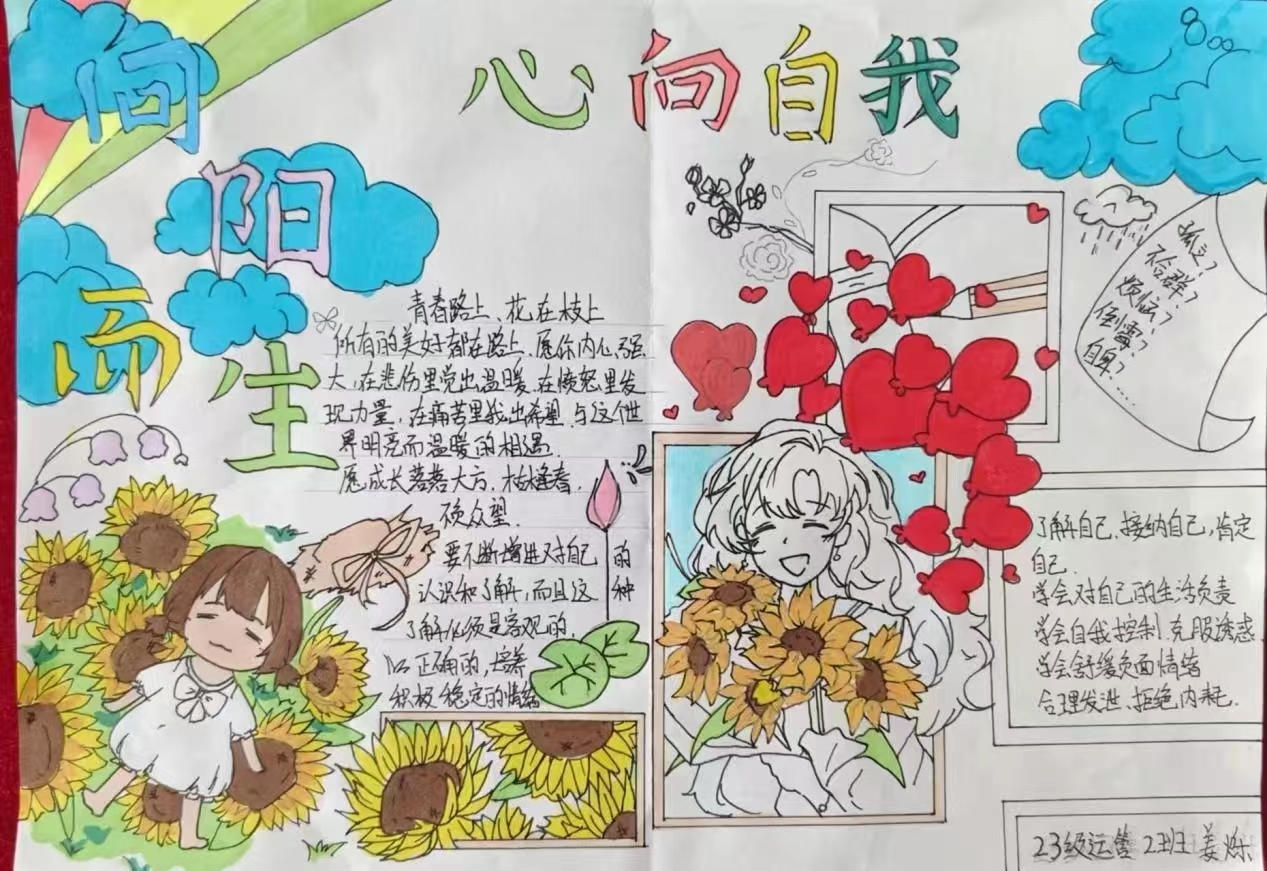 向
阳
而
生
心向自我
青春路上、花在枝上
所有的美好都在路上.愿你内心强
大,在悲伤里觉出温暖.在愤怒里发
现力量,在痛苦里找出希望.与这个世
界明亮而温暖的相遇.
愿成长落落大方,枯木逢春,
不负众望.
要不断增进对自己的
认识和了解,而且这种
了解必须是客观的.
正确的,培养
积极稳定的情绪
孤立?
不合群?
烦恼?
倒霉?
自卑?......
了解自己.接纳自己,肯定
自己.
学会对自己的生活负责
学会自我控制.克服诱惑.
学会舒缓负面情绪
合理发泄、拒绝内耗.
23级运营2班姜烁